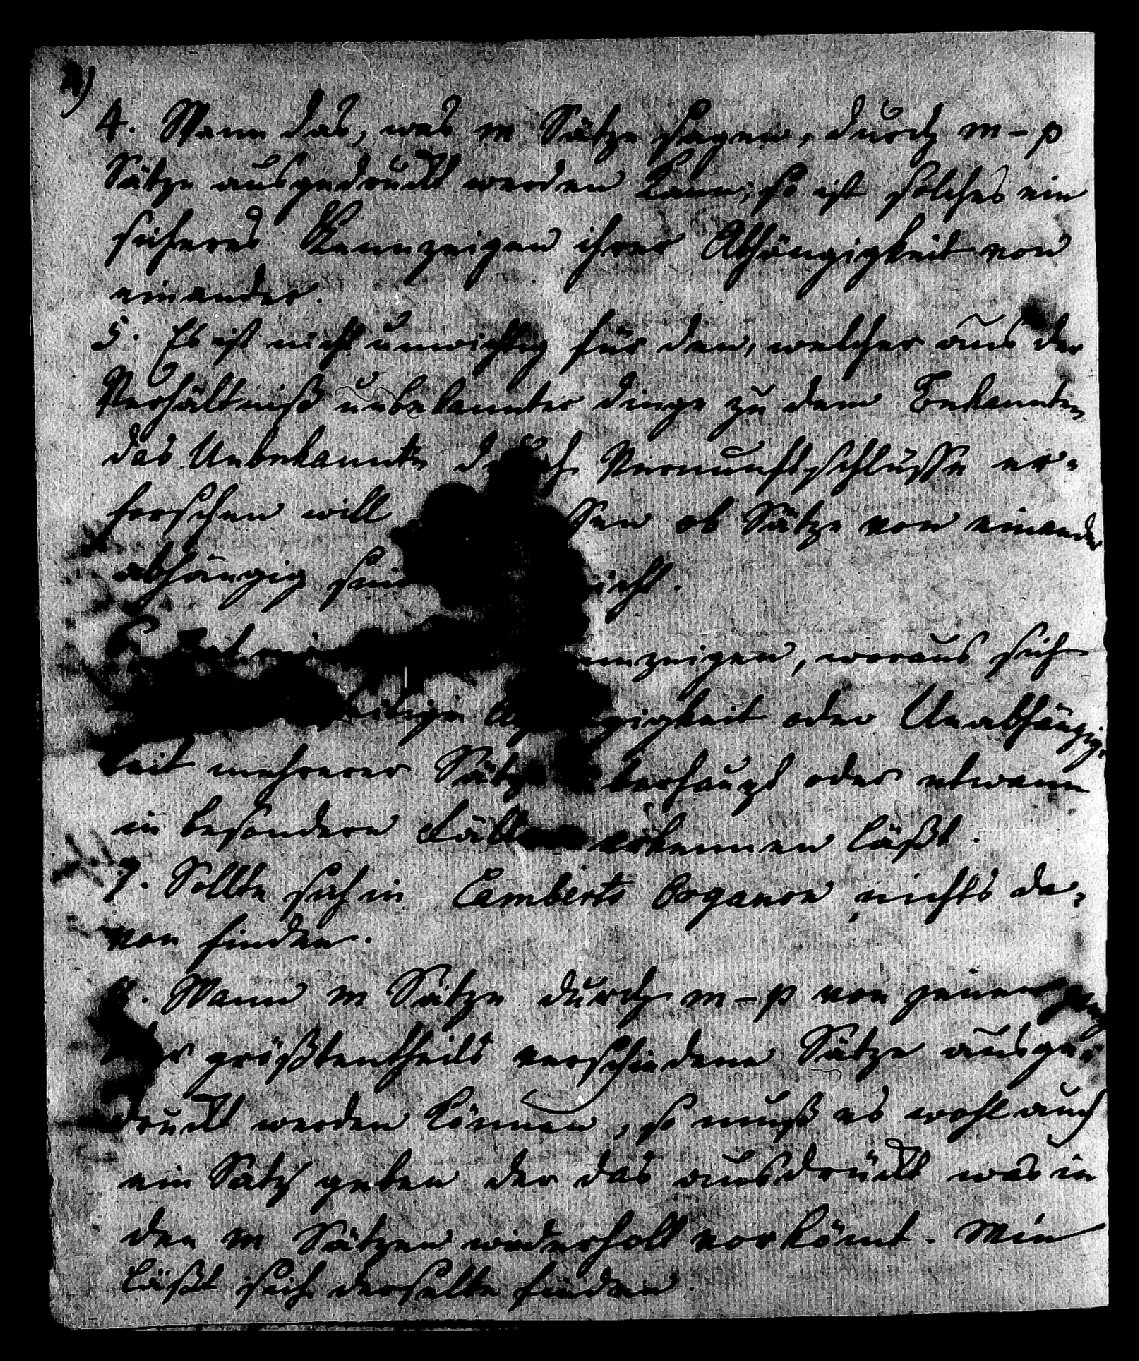 4. Wann das, was m Sätze sagen, durch m-p
Sätze ausgedruckt werden kann, so ist solches ein
sicheres Kennzeigen ihrer Abhängigkeit von
einander.
5. Es ist nicht unwichtig für den, welcher aus der
Verhältniß unbekannter dinge zu dem Bekannten
das Unbekannte durch Vernunftschlüsse er=
forschen will ob Sätze von einander
abhängig
woraus sich
oder Unabhängig=
keit mehrerer Sätze überhaupt oder etwann
in besondern Fällen erkennen läßt.
7. Sollte sich in Lamberts Organon nichts da=
von finden.
8. Wann m Sätze durch m-p von jenen
größtentheils verschiedene Sätze ausge=
druckt werden können, so muß es wohl auch
ein Satz geben der das ausdrückt was in
den m Sätzen widerholt vorkömt. Wie
läßt sich derselbe finden.